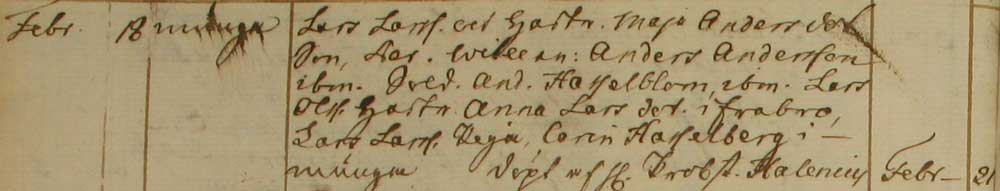 Febr. 18 munga Lars Larss. och Hustr. Maja Anders dot
Son, Lars. Wittn: Anders Andersson
ibm. Dred. And. Hasselblom, ibm. Lars
Olss. Hustr. Anna Lars dot. i frabro,
Lars Larss. Pegu, Carin Hasselberg i —
munga Döpt af H. Probst. Halenius Febr— 21